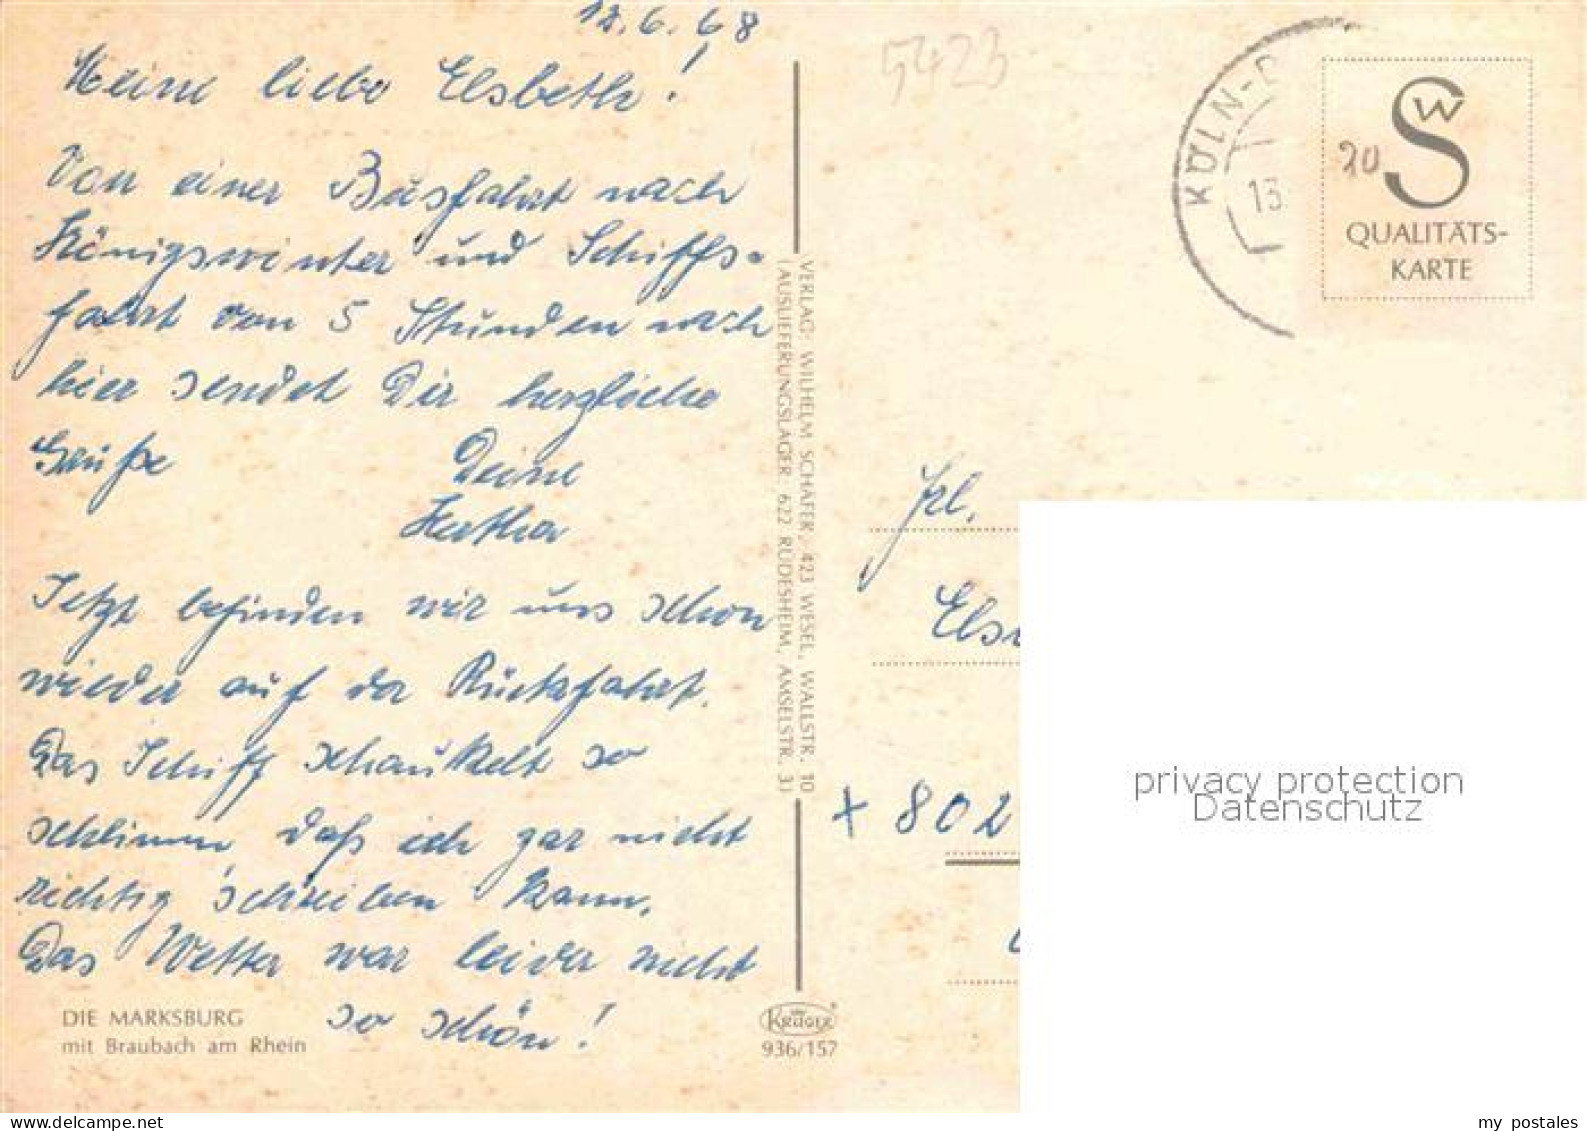 12.6.68
Meine liebe Elsbeth!
Von einer Busfahrt nach
Königswinter und Schiffs-
fahrt von 5 Stunden nach
hier sendet Dir herzliche
Grüße Deine
Hertha
Jetzt befinden wir uns schon
wieder auf der Rückfahrt.
Das Schiff schaukelt so
schlimm, daß ich gar nicht
richtig schreiben kann.
Das Wetter war leider nicht
so schön!
DIE MARKSBURG
mit Braubach am Rhein
VERLAG: WILHELM SCHÄFER, 423 WESEL, WALLSTR. 10
(AUSLIEFERUNGSLAGER: 622 RÜDESHEIM, AMSELSTR. 3)
Krüger
936/157
5423
KÖLN-
13.
SW
20
QUALITÄTS-
KARTE
Frl.
+ 802
privacy protection
Datenschutz
my postales